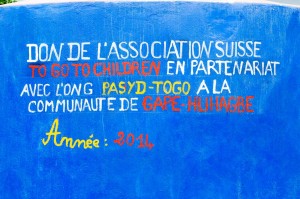 DON DE L'ASSOCIATION SUISSE
TO GO TO CHILDREN EN PARTENARIAT
AVEC L'ONG PASYD-TOGO A LA
COMMUNAUTE DE GAPE-HLIHAGBE
Année : 2014